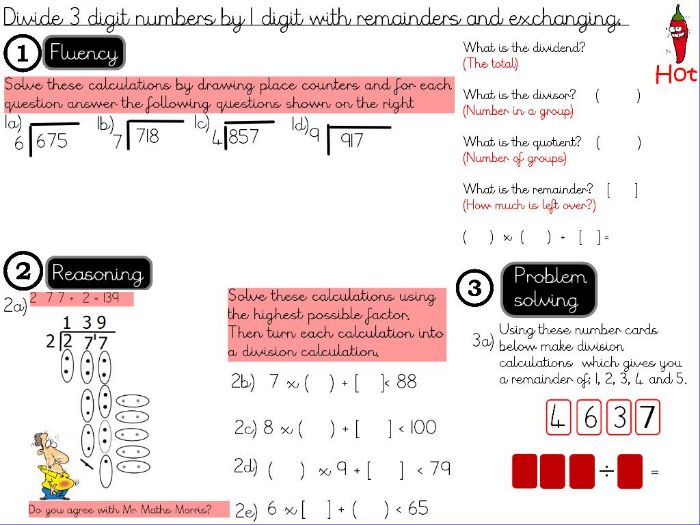 Divide 3 digit numbers by 1 digit with remainders and exchanging.
Hot
1 Fluency
Solve these calculations by drawing place counters and for each
question answer the following questions shown on the right
1a) 6 675
1b) 7 718
1c) 4 857
1d) 9 917
What is the dividend?
(The total)
What is the divisor? ( )
(Number in a group)
What is the quotient? ( )
(Number of groups)
What is the remainder? [ ]
(How much is left over?)
( ) x ( ) + [ ] =
2 Reasoning
2a) 2 7 7 ÷ 2 = 139
1 3 9
2 2 7 17
Do you agree with Mr Maths Morris?
Solve these calculations using
the highest possible factor.
Then turn each calculation into
a division calculation.
2b) 7 x ( ) + [ ] < 88
2c) 8 x ( ) + [ ] < 100
2d) ( ) x 9 + [ ] < 79
2e) 6 x [ ] + ( ) < 65
3 Problem
solving
3a) Using these number cards
below make division
calculations which gives you
a remainder of; 1, 2, 3, 4 and 5.
4 6 3 7
÷ =